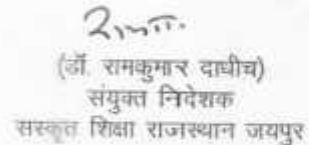 (डॉ. रामकुमार दाधीच)
संयुक्त निदेशक
संस्कृत शिक्षा राजस्थान जयपुर